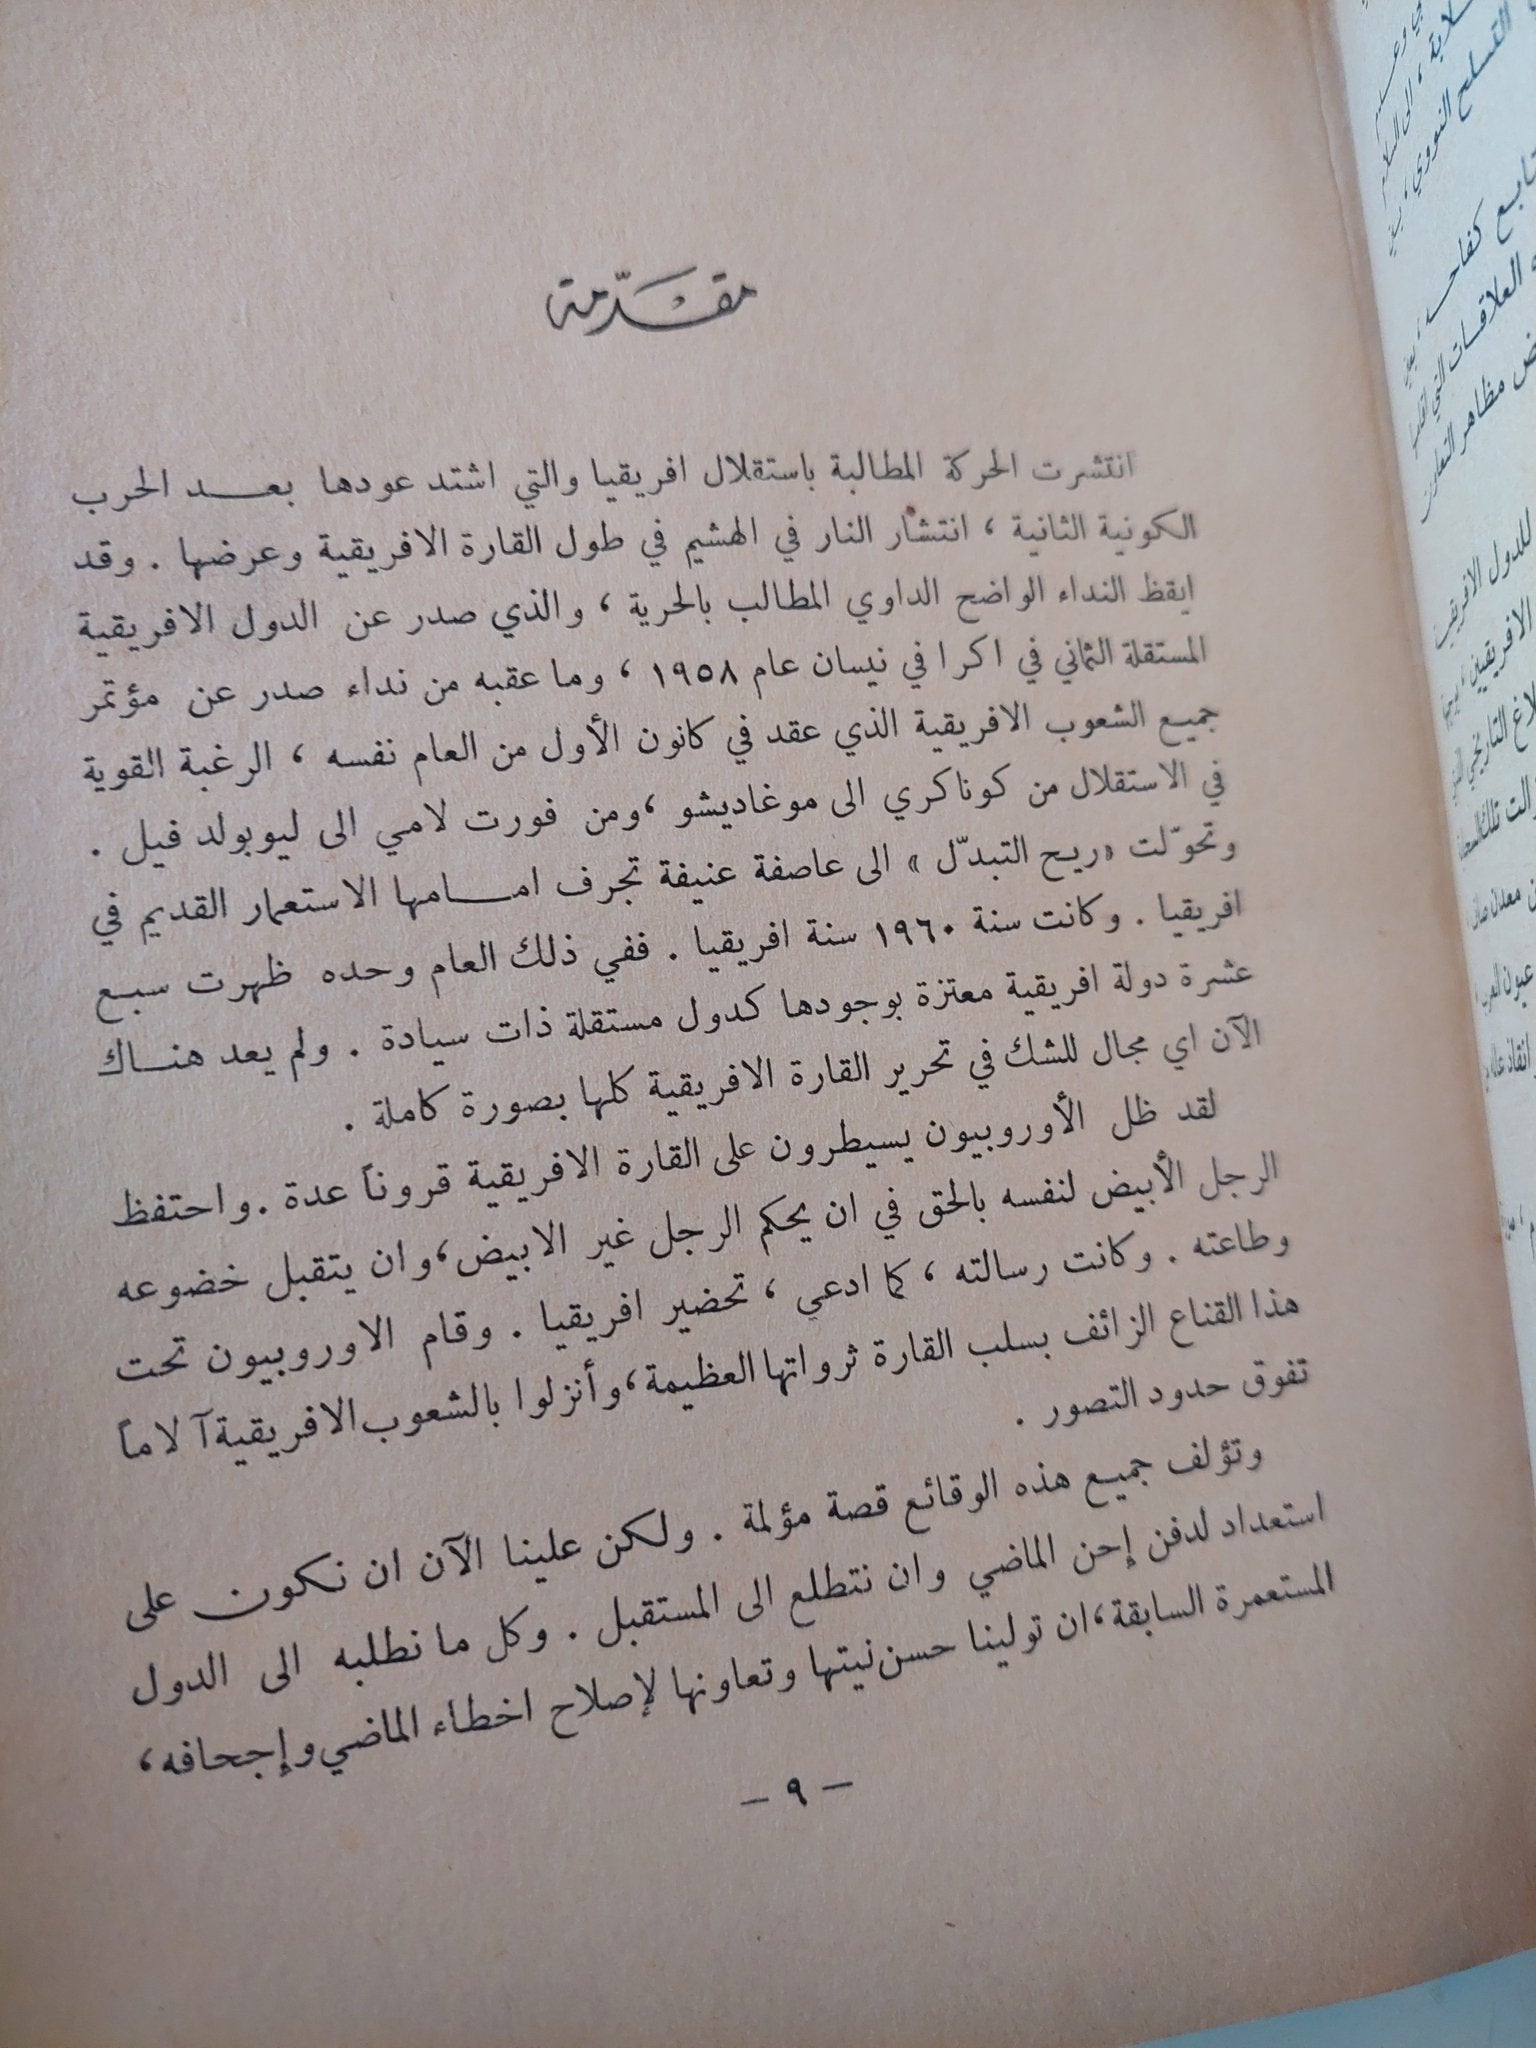 مقدّمة
انتشرت الحركة المطالبة باستقلال افريقيا والتي اشتد عودها بعد الحرب
الكونية الثانية ، انتشار النار في الهشيم في طول القارة الافريقية وعرضها . وقد
ايقظ النداء الواضح الداوي المطالب بالحرية ، والذي صدر عن الدول الافريقية
المستقلة الثماني في اكرا في نيسان عام ١٩٥٨ ، وما عقبه من نداء صدر عن مؤتمر
جميع الشعوب الافريقية الذي عقد في كانون الأول من العام نفسه ، الرغبة القوية
في الاستقلال من كوناكري الى موغاديشو ، ومن فورت لامي الى ليوبولد فيل .
وتحوّلت «ريح التبدّل » الى عاصفة عنيفة تجرف امامها الاستعمار القديم في
افريقيا . وكانت سنة ١٩٦٠ سنة افريقيا . ففي ذلك العام وحده ظهرت سبع
عشرة دولة افريقية معتزة بوجودها كدول مستقلة ذات سيادة . ولم يعد هناك
الآن اي مجال للشك في تحرير القارة الافريقية كلها بصورة كاملة .
لقد ظل الأوروبيون يسيطرون على القارة الافريقية قروناً عدة . واحتفظ
الرجل الأبيض لنفسه بالحق في ان يحكم الرجل غير الابيض ، وان يتقبل خضوعه
وطاعته . وكانت رسالته ، كما ادعي ، تحضير افريقيا . وقام الاوروبيون تحت
هذا القناع الزائف بسلب القارة ثرواتها العظيمة ، وأنزلوا بالشعوب الافريقية آلاماً
تفوق حدود التصور .
وتؤلف جميع هذه الوقائع قصة مؤلمة . ولكن علينا الآن ان نكون على
استعداد لدفن إحن الماضي وان نتطلع الى المستقبل . وكل ما نطلبه الى الدول
المستعمرة السابقة ، ان تولينا حسن نيتها وتعاونها لإصلاح اخطاء الماضي وإجحافه ،
– ٩ –
التسلح النووي ،
تابع كفاحه ،
العلاقات التي
مظاهر
للدول الافريقية
الافريقيين ،
التاريخي